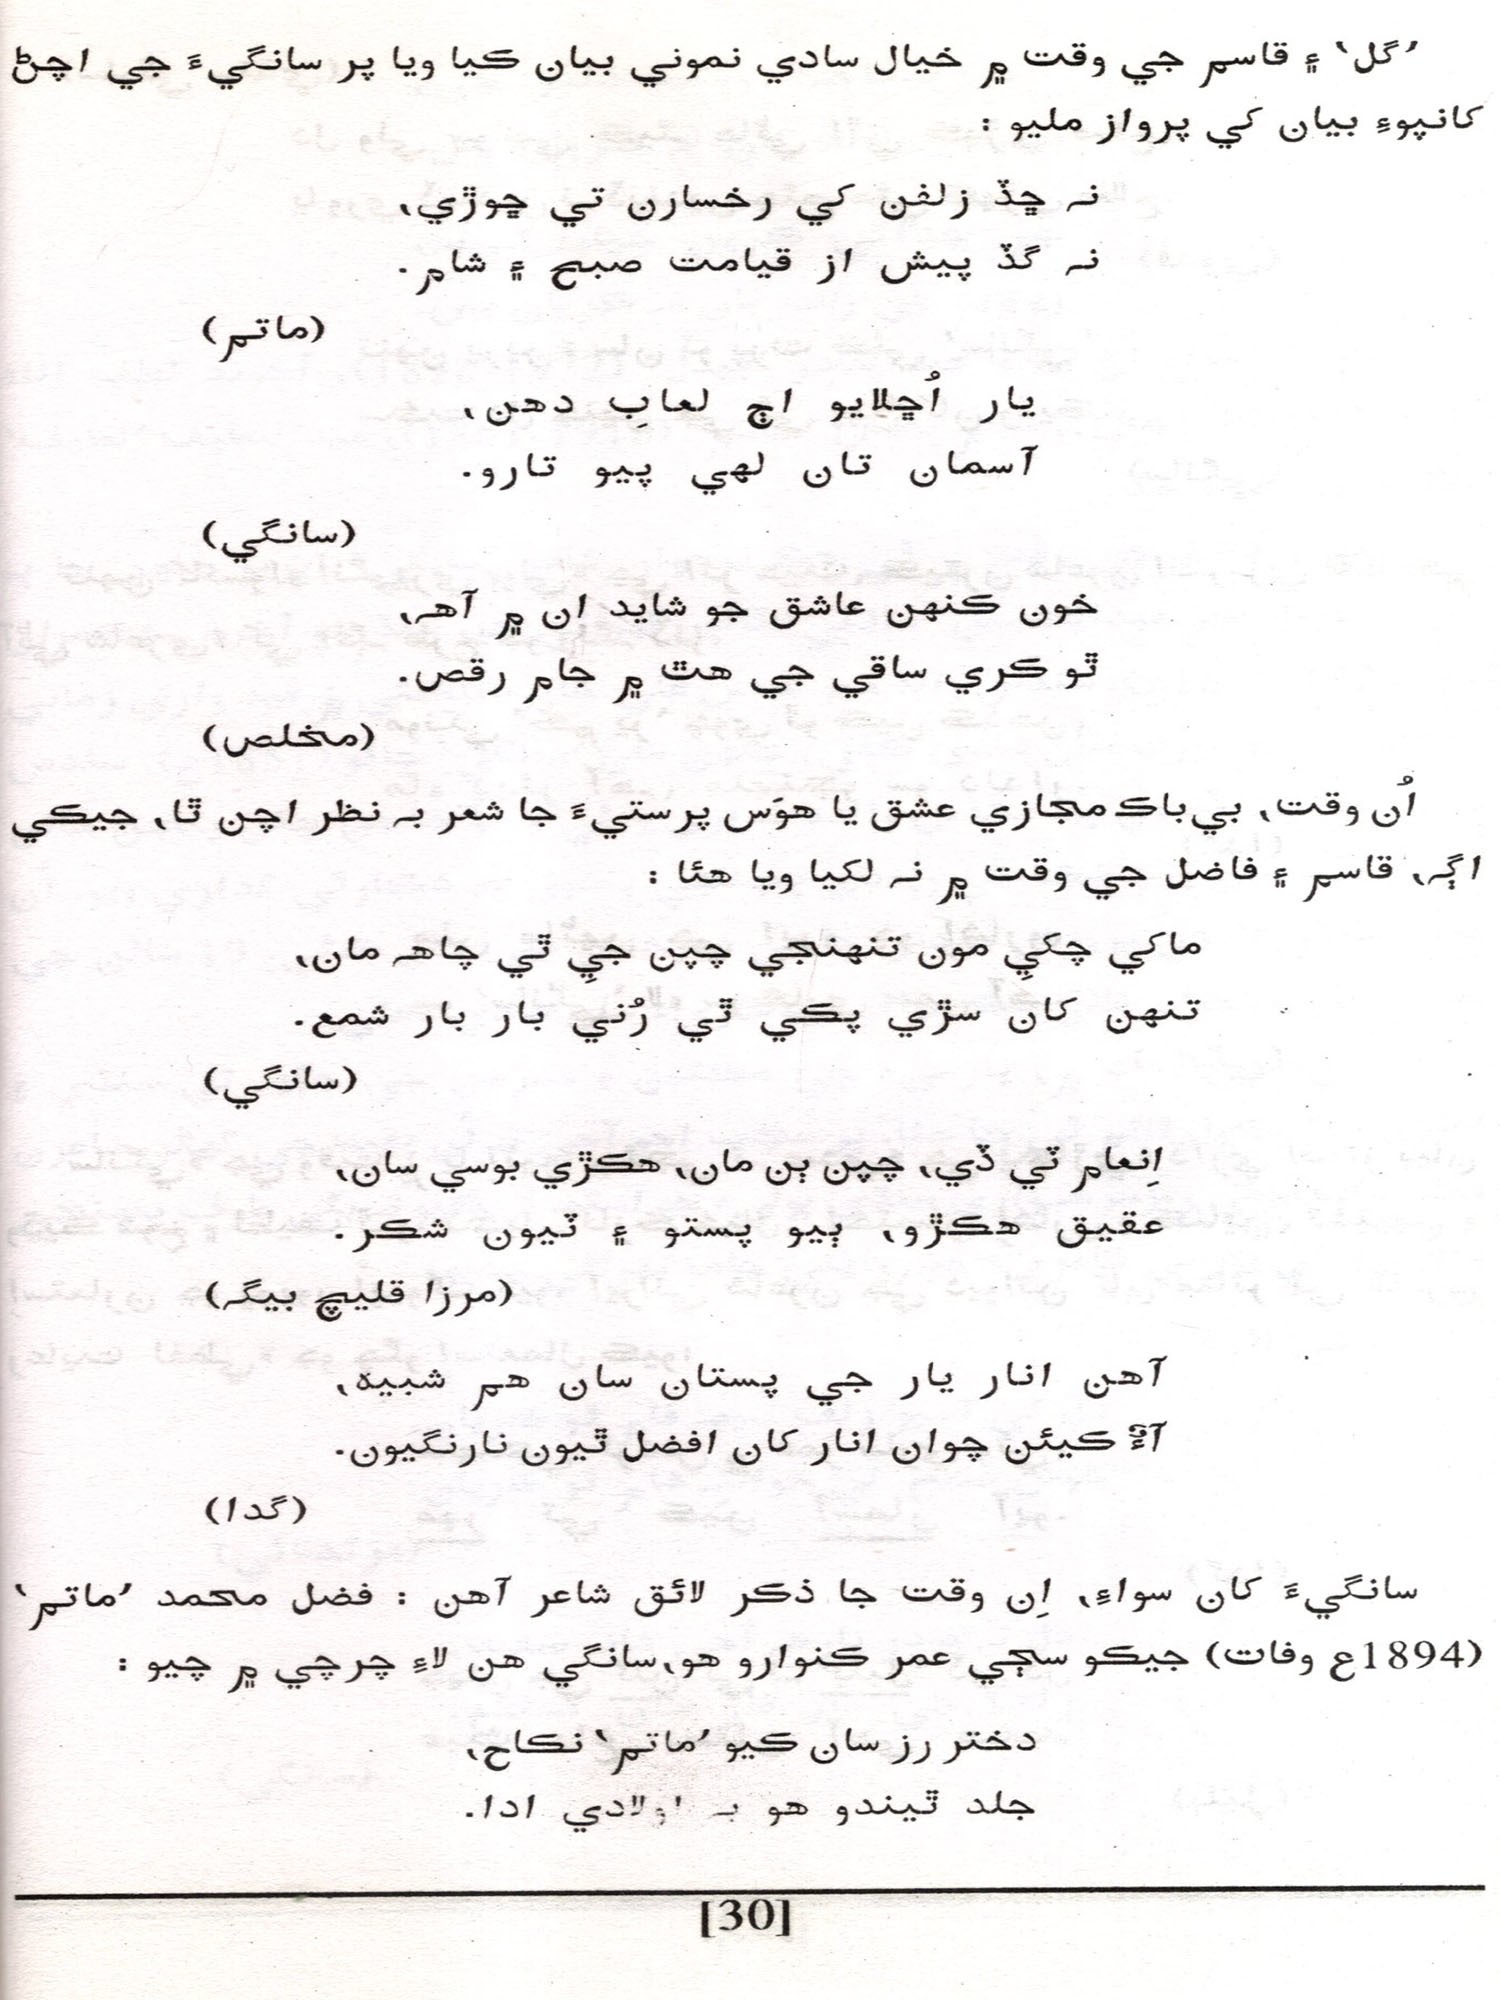 ’گل‘ ۽ قاسم جي وقت ۾ خيال سادي نموني بيان ڪيا ويا پر سانگيءَ جي اچڻ
کانپوءِ بيان کي پرواز مليو :
نہ ڇڏ زلفن کي رخسارن تي ڇوڙي،
نہ گڏ پيش از قيامت صبح ۽ شام.
(ماتم)
يار اُڇلايو اڄ لعابِ دهن،
آسمان تان لهي پيو تارو.
(سانگي)
خون ڪنهن عاشق جو شايد ان ۾ آهہ،
ٿو ڪري ساقي جي هٿ ۾ جام رقص.
(مخلص)
اُن وقت، بي‌باڪ مجازي عشق يا هوَس پرستيءَ جا شعر بہ نظر اچن ٿا، جيڪي
اڳہ، قاسم ۽ فاضل جي وقت ۾ نہ لکيا ويا هئا :
ماکي چکيِ مون تنهنجي چپن جيِ ٿي چاهہ مان،
تنهن کان سڙي پڪي ٿي رُني بار بار شمع.
(سانگي)
اِنعام ٽي ڏي، چپن ٻن مان، هڪڙي بوسي سان،
عقيق هڪڙو، ٻيو پستو ۽ ٽيون شڪر.
(مرزا قليچ بيگہ)
آهن انار يار جي پستان سان هم شبيہ،
آءٌ ڪيئن چوان انار کان افضل ٿيون نارنگيون.
(گدا)
سانگيءَ کان سواءِ، اِن وقت جا ذڪر لائق شاعر آهن : فضل محمد ’ماتم‘
(1894ع وفات) جيڪو سڄي عمر ڪنوارو هو،سانگي هن لاءِ چرچي ۾ چيو :
دختر رز سان ڪيو ’ماتم‘ نڪاح،
جلد ٿيندو هو بہ اولادي ادا.
[30]